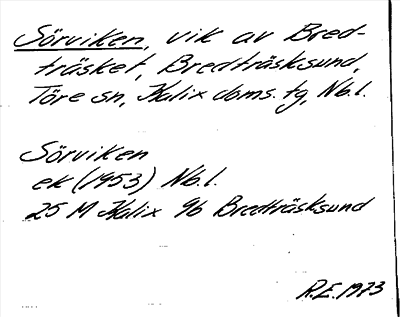 Sörviken, vik av Bred-
träsket, Bredträsksund,
Töre sn, Kalix doms. tg, Nb.l.
Sörviken
ek (1953) Nb.l.
25 M Kalix 9b Bredträsksund
R.E. 1973